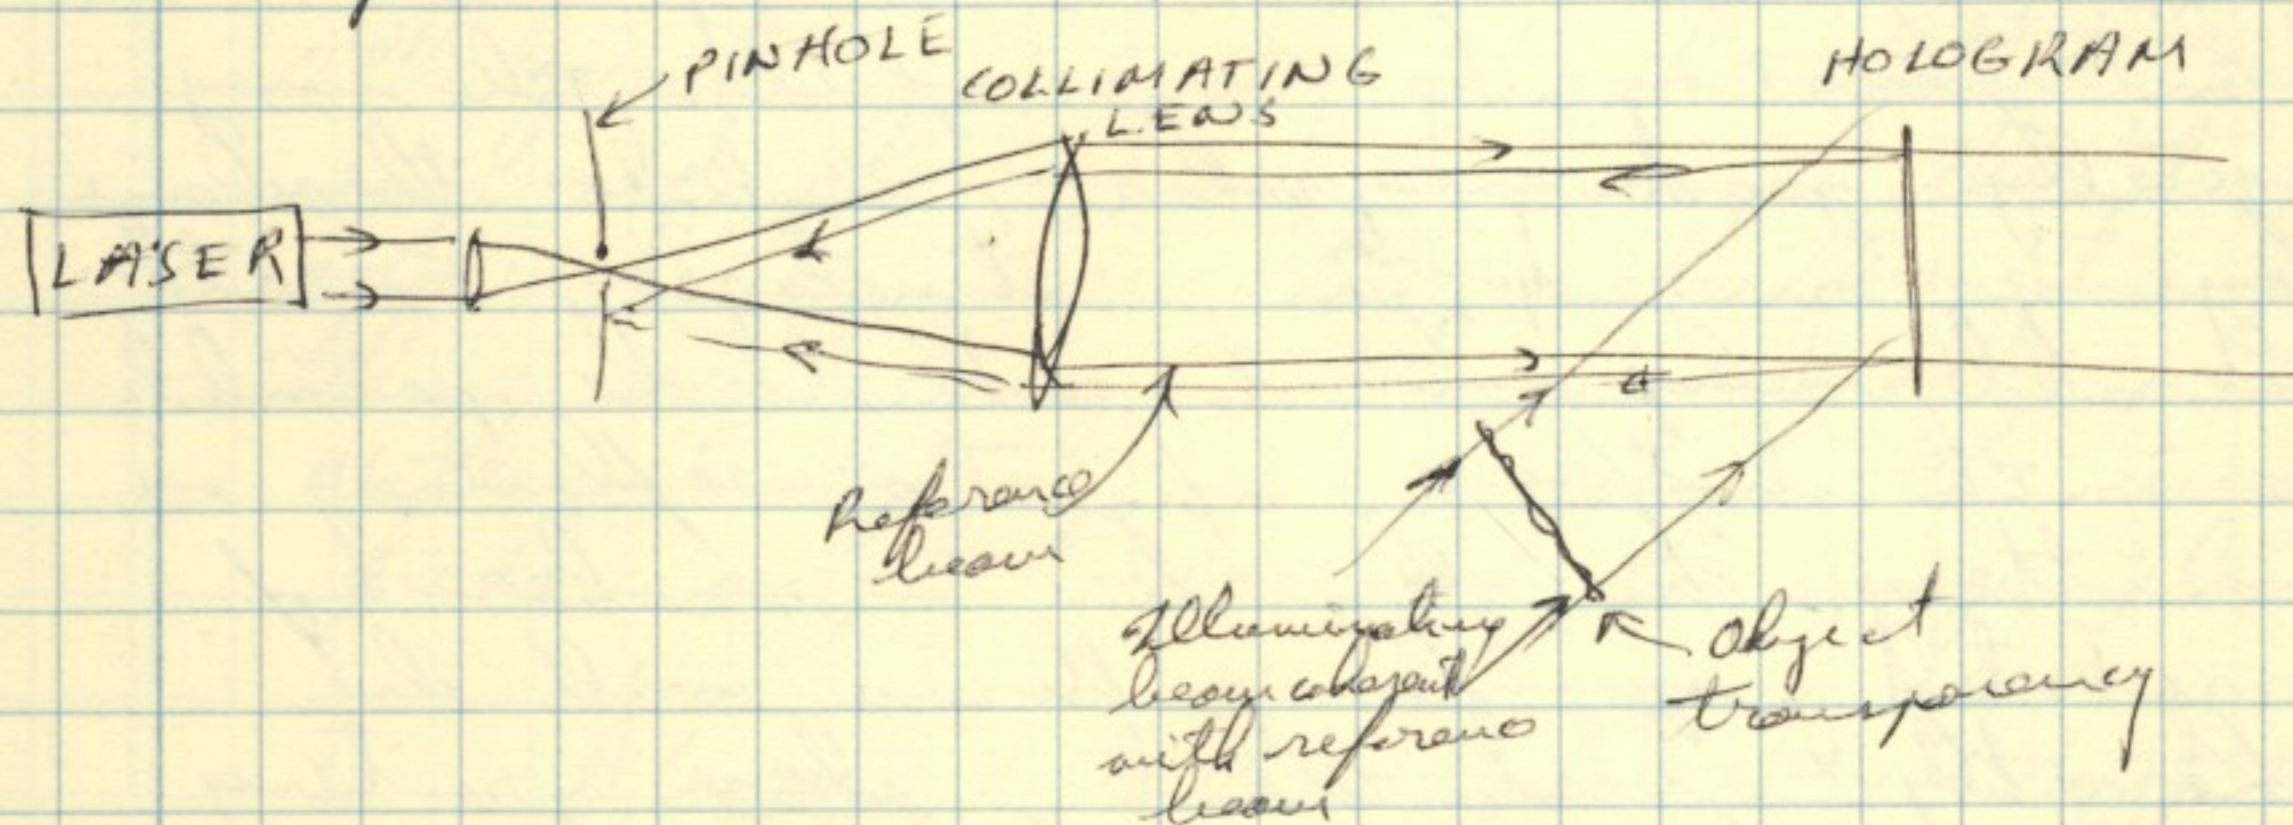 PINHOLE
COLLIMATING
LENS
HOLOGRAM
LASER
Reference
beam
Illuminating
beam coherent
with reference
beam
Object
transparency